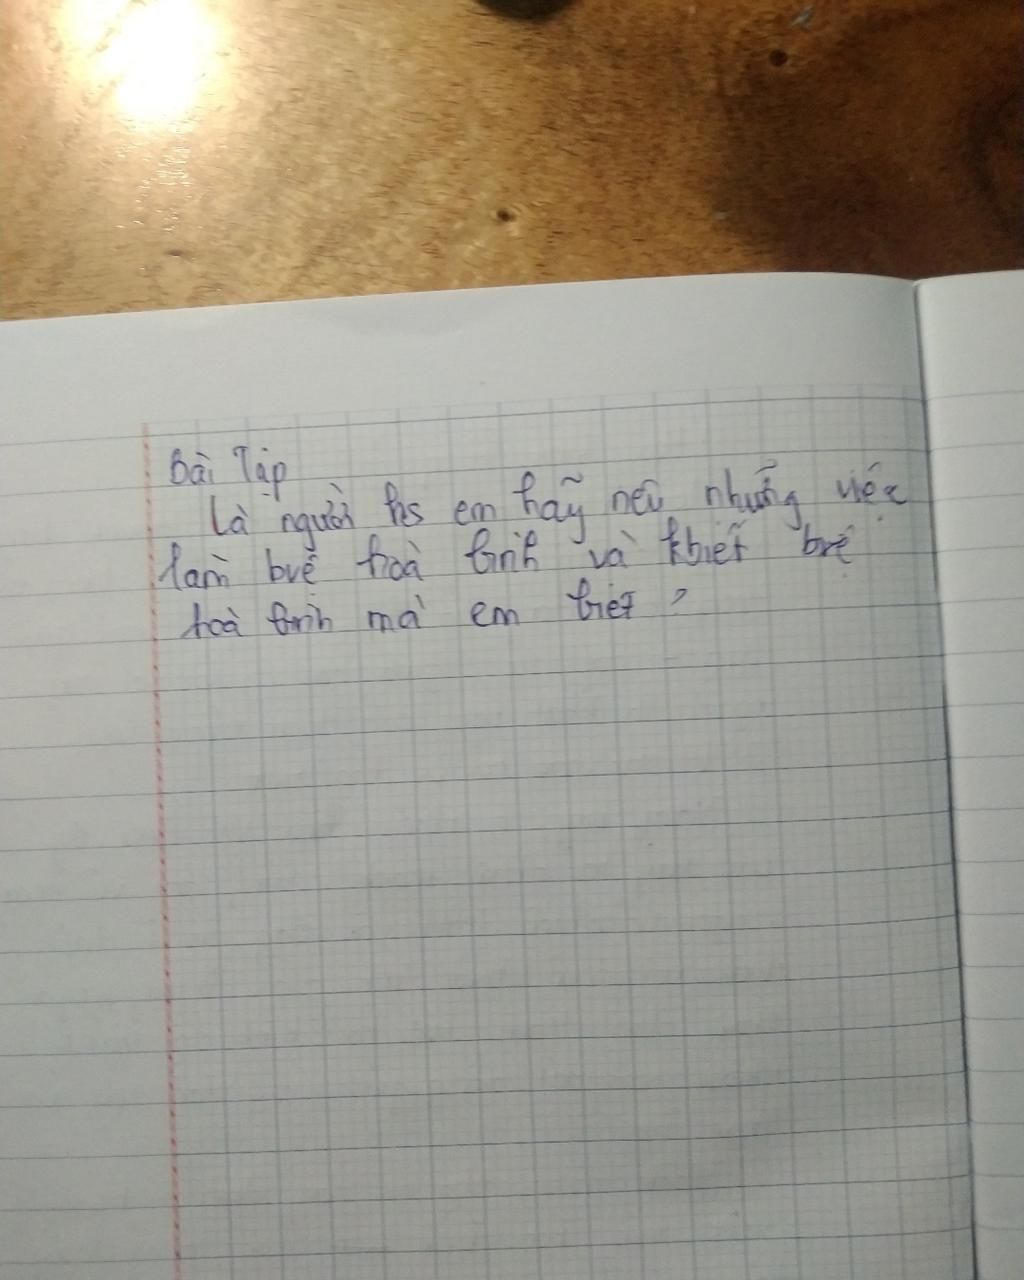 Bài Tập
Là người hs em hãy nêu những việc
làm bvệ hoà bình và
hoà bình mà em biết ?